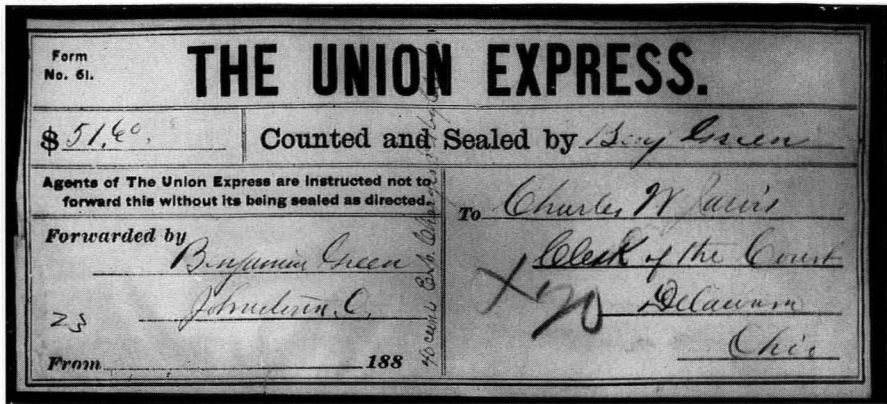 Form
No. 61.
THE UNION EXPRESS.
$ 51.60. Counted and Sealed by Benj Green
Agents of The Union Express are instructed not to
forward this without its being sealed as directed.
Forwarded by
Benjamin Green
Johnstown, O.
23
From 188
40 cents Exp. Charges
To Charles W Jarvis
Clerk of the Court
X 20 Delaware
Ohio